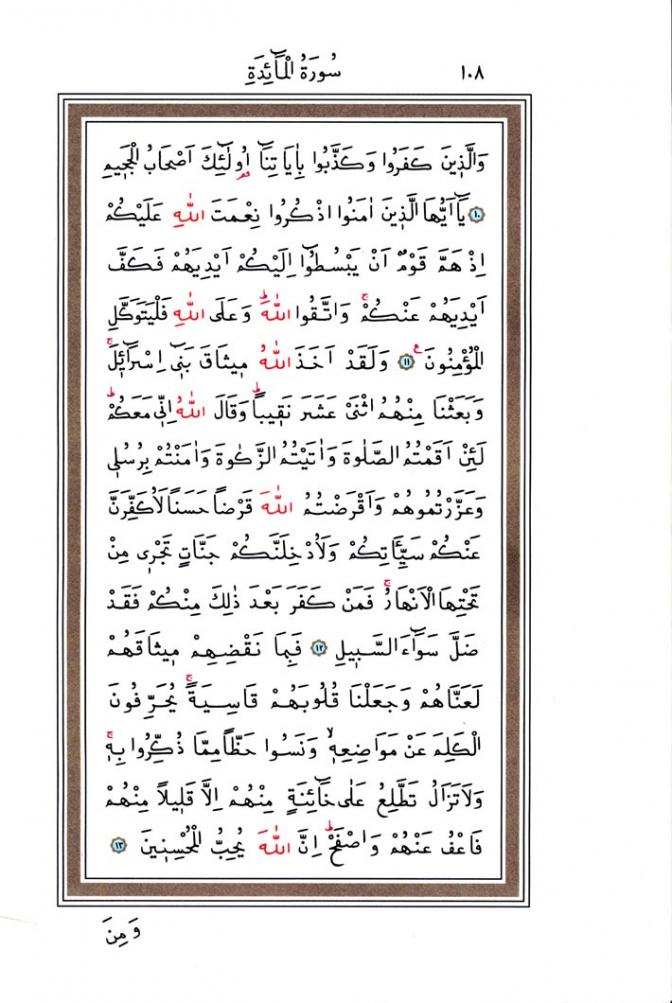 ١٠٨ سُورَةُ الْمَٓائِدَةِ
وَالَّذ۪ينَ كَفَرُوا وَكَذَّبُوا بِاٰيَاتِنَٓا اُو۬لٰٓئِكَ اَصْحَابُ الْجَح۪يمِ
﴿١٠﴾ يَٓا اَيُّهَا الَّذ۪ينَ اٰمَنُوا اذْكُرُوا نِعْمَتَ اللّٰهِ عَلَيْكُمْ
اِذْ هَمَّ قَوْمٌ اَنْ يَبْسُطُٓوا اِلَيْكُمْ اَيْدِيَهُمْ فَكَفَّ
اَيْدِيَهُمْ عَنْكُمْۚ وَاتَّقُوا اللّٰهَۜ وَعَلَى اللّٰهِ فَلْيَتَوَكَّلِ
الْمُؤْمِنُونَ۟ ﴿١١﴾ وَلَقَدْ اَخَذَ اللّٰهُ م۪يثَاقَ بَن۪ٓي اِسْرَٓائ۪لَۚ
وَبَعَثْنَا مِنْهُمُ اثْنَيْ عَشَرَ نَق۪يبًاۜ وَقَالَ اللّٰهُ اِنّ۪ي مَعَكُمْۜ
لَئِنْ اَقَمْتُمُ الصَّلٰوةَ وَاٰتَيْتُمُ الزَّكٰوةَ وَاٰمَنْتُمْ بِرُسُل۪ي
وَعَزَّرْتُمُوهُمْ وَاَقْرَضْتُمُ اللّٰهَ قَرْضًا حَسَنًا لَاُكَفِّرَنَّ
عَنْكُمْ سَيِّـَٔاتِكُمْ وَلَاُدْخِلَنَّكُمْ جَنَّاتٍ تَجْر۪ي مِنْ
تَحْتِهَا الْاَنْهَارُۚ فَمَنْ كَفَرَ بَعْدَ ذٰلِكَ مِنْكُمْ فَقَدْ
ضَلَّ سَوَٓاءَ السَّب۪يلِ ﴿١٢﴾ فَبِمَا نَقْضِهِمْ م۪يثَاقَهُمْ
لَعَنَّاهُمْ وَجَعَلْنَا قُلُوبَهُمْ قَاسِيَةًۚ يُحَرِّفُونَ
الْكَلِمَ عَنْ مَوَاضِعِه۪ۙ وَنَسُوا حَظًّا مِمَّا ذُكِّرُوا بِه۪ۚ
وَلَا تَزَالُ تَطَّلِعُ عَلٰى خَٓائِنَةٍ مِنْهُمْ اِلَّا قَل۪يلًا مِنْهُمْ
فَاعْفُ عَنْهُمْ وَاصْفَحْۜ اِنَّ اللّٰهَ يُحِبُّ الْمُحْسِن۪ينَ ﴿١٣﴾
وَمِنَ